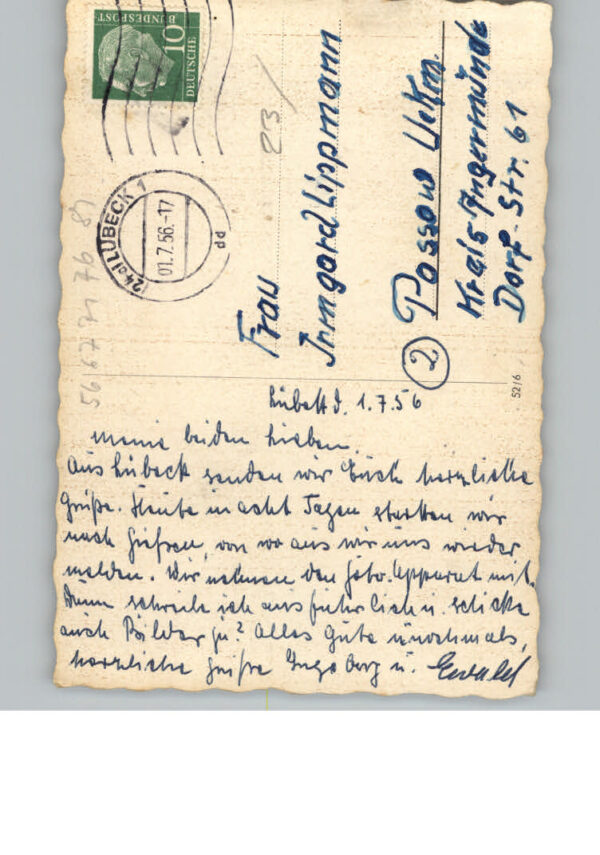 DEUTSCHE
BUNDESPOST
10
(24a) LÜBECK 1
01.7.56.-17
dd
23/
Frau
Irmgard Lippmann
2
Passow Uckm.
Kreis Angermünde
Dorf-Str. 61
52/6
Lübeck d. 1.7.56
Meine beiden Lieben.
Aus Lübeck senden wir Euch herzliche
Grüße. Heute in acht Tagen starten wir
nach, von wo aus wir uns wieder
melden. Wir nehmen den Foto-Apparat mit.
Dann schreibe ich ausführlich u. schicke
auch Bilder ja? Alles Gute u nochmals,
herzliche Grüße Ingeborg u. Ewald